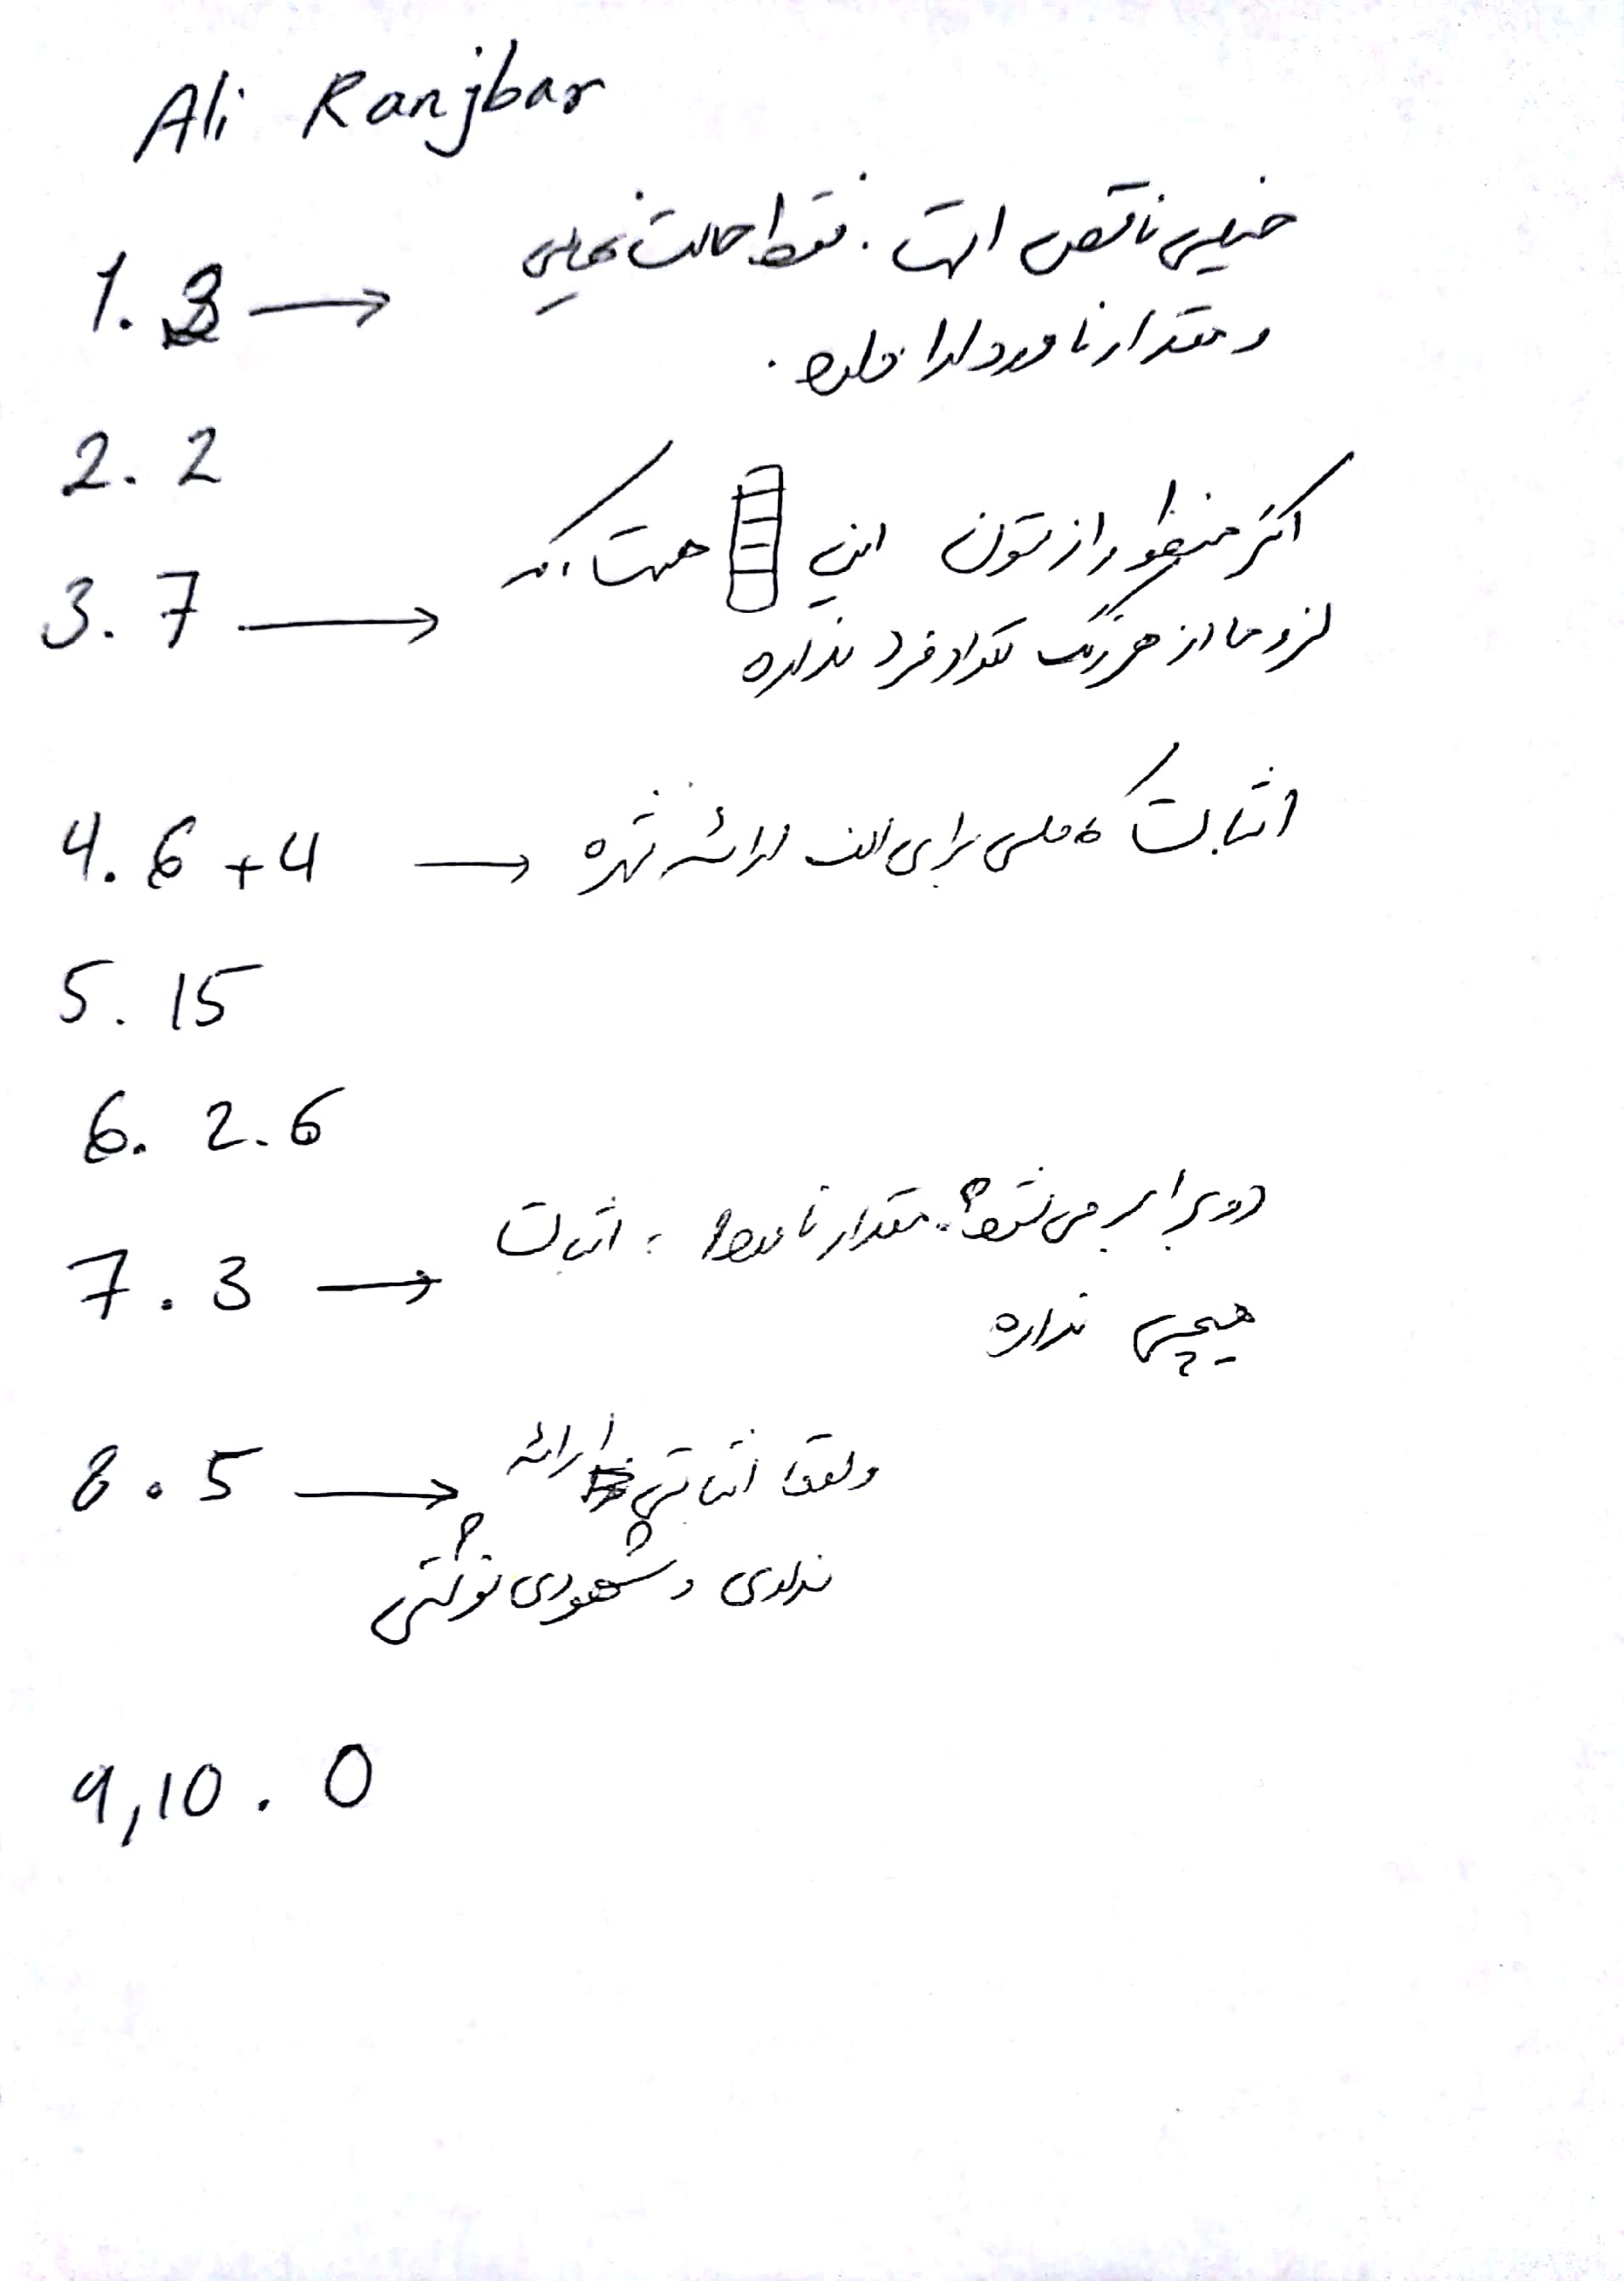 Ali Ranjbar
1. 3 → خیلی ناقص است. فقط حالت نهایی
و مقدار ناوردا داره.
2. 2
3. 7 → اگر منظور از ستون این هست که
لزوما از هر رنگ تعداد فرد نداره
4. 6 + 4 → اثبات کاملی برای الف ارائه نشده
5. 15
6. 2.6
7. 3 → دو برابر می شود؟ مقدار ناوردا؟ اثبات
هیچی نداره
8. 5 → واقعا اثباتی ارائه
ندادی و شهودی نوشتی
9,10. 0